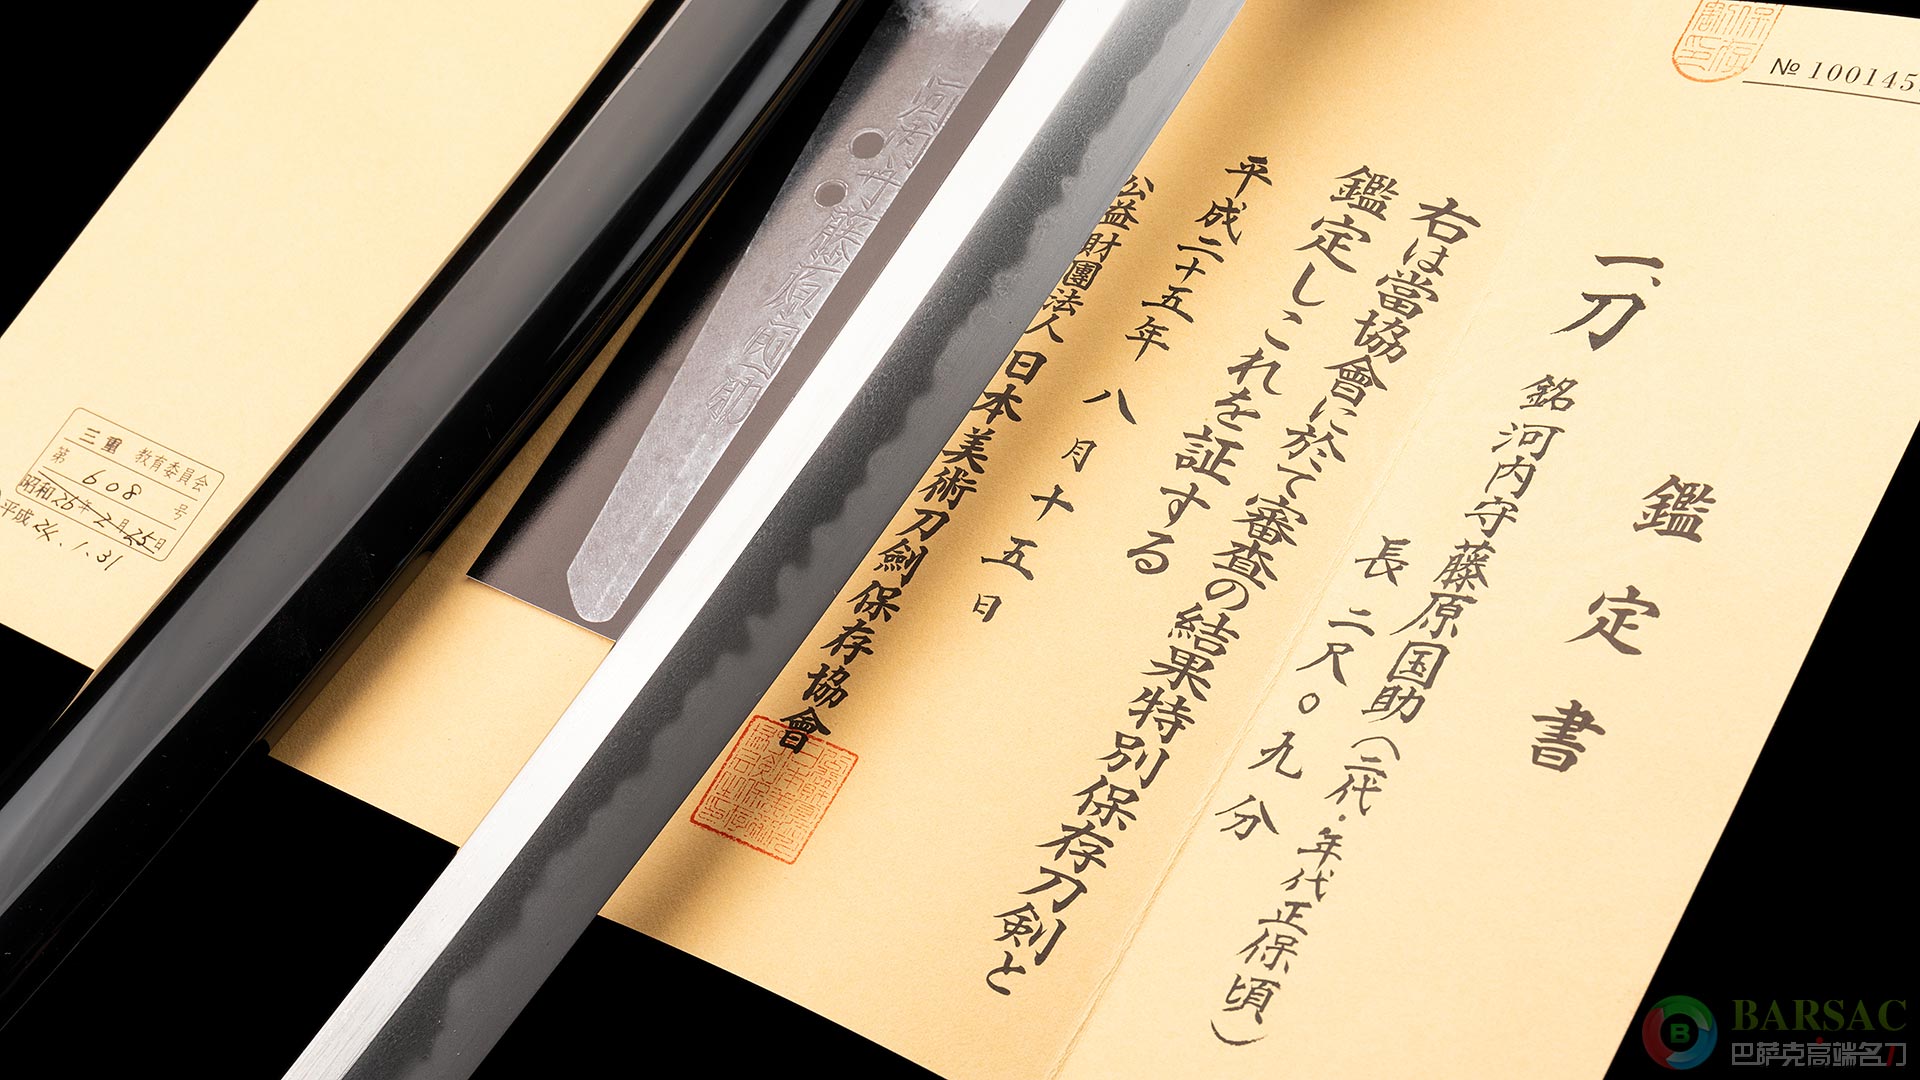 № 100145
鑑定書
一、刀 銘 河内守藤原国助(二代・年代正保頃)
長 二尺〇九分
右は當協會に於て審査の結果特別保存刀剣と
鑑定しこれを証する
平成二十五年 八月十五日
公益財團法人 日本美術刀劍保存協會
河内守藤原国助
三重 教育委員会
第 608 号
昭和26年2月25日
平成24.1.31
BARSAC
巴萨克高端名刀